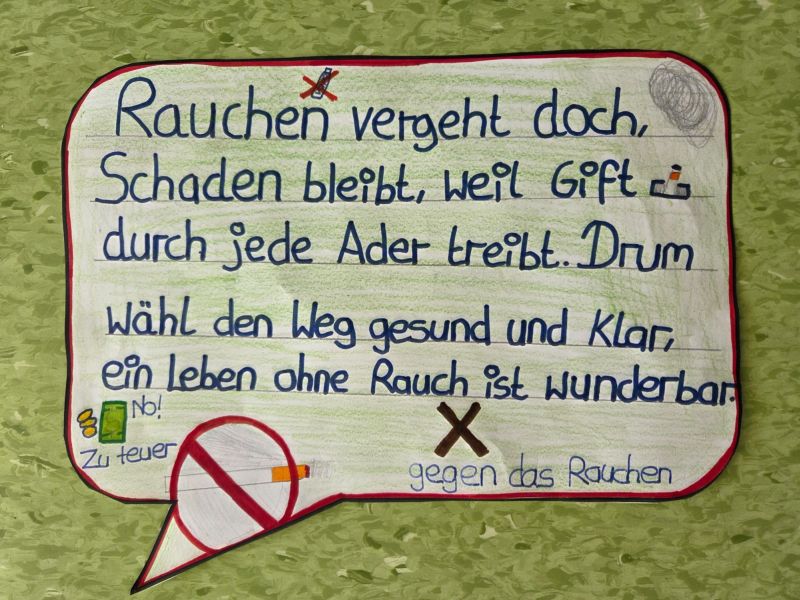 Rauchen vergeht doch,
Schaden bleibt, weil Gift
durch jede Ader treibt. Drum
wähl den Weg gesund und klar,
ein Leben ohne Rauch ist wunderbar.
No!
Zu teuer
gegen das Rauchen